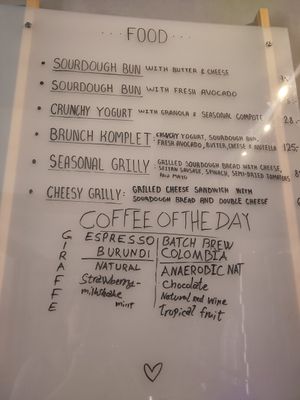 ··· FOOD ···
• SOURDOUGH BUN WITH BUTTER & CHEESE
• SOURDOUGH BUN WITH FRESH AVOCADO
• CRUNCHY YOGURT WITH GRANOLA & SEASONAL COMPOTE 28.-
• BRUNCH KOMPLET - CRUNCHY YOGURT, SOURDOUGH BUN,
FRESH AVOCADO, BUTTER, CHEESE & NUTELLA 125.-
• SEASONAL GRILLY: GRILLED SOURDOUGH BREAD WITH CHEESE,
SEITAN SAUSAGE, SPINACH, SEMI-DRIED TOMATOES
AND MAYO
• CHEESY GRILLY: GRILLED CHEESE SANDWICH WITH
SOURDOUGH BREAD AND DOUBLE CHEESE
COFFEE OF THE DAY
GIRAFFE
ESPRESSO
BURUNDI
NATURAL
Strawberry-
milkshake
mint
BATCH BREW
COLOMBIA
ANAEROBIC NAT
Chocolate
Natural red wine
Tropical fruit